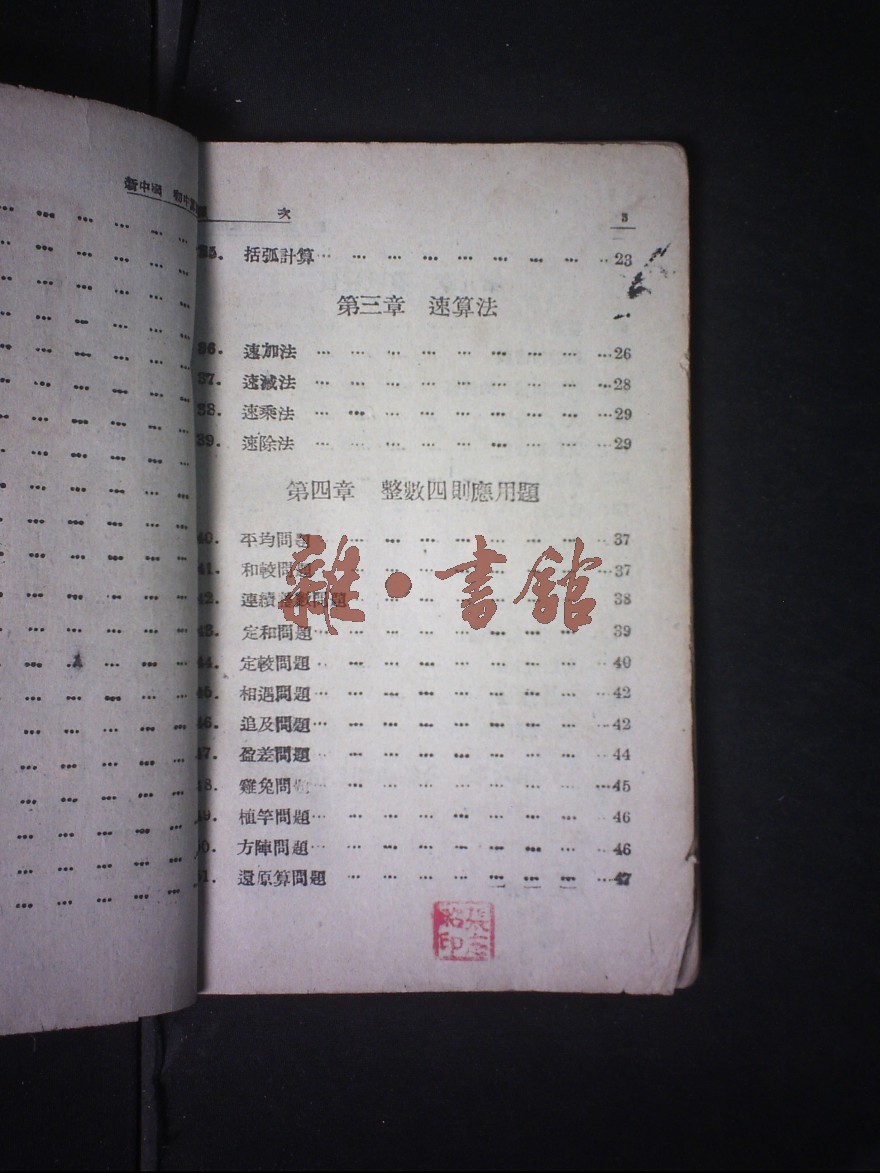 新中國 初中算
次 3
35. 括弧計算 … … … … … … … … …23
第三章 速算法
36. 速加法 … … … … … … … … …26
37. 速減法 … … … … … … … … …28
38. 速乘法 … … … … … … … … …29
39. 速除法 … … … … … … … … …29
第四章 整數四則應用題
40. 平均問題 … … … … … … … …37
41. 和較問題 … … … … … … … …37
42. 連續差數問題 … … … … … … … 38
43. 定和問題 … … … … … … … … 39
44. 定較問題 … … … … … … … …40
45. 相遇問題 … … … … … … … …42
46. 追及問題 … … … … … … … …42
47. 盈差問題 … … … … … … … …44
48. 雞兔問 … … … … … … … …45
49. 植竿問題 … … … … … … … …46
50. 方陣問題 … … … … … … … …46
51. 還原算問題 … … … … … … … …47
雜·書館